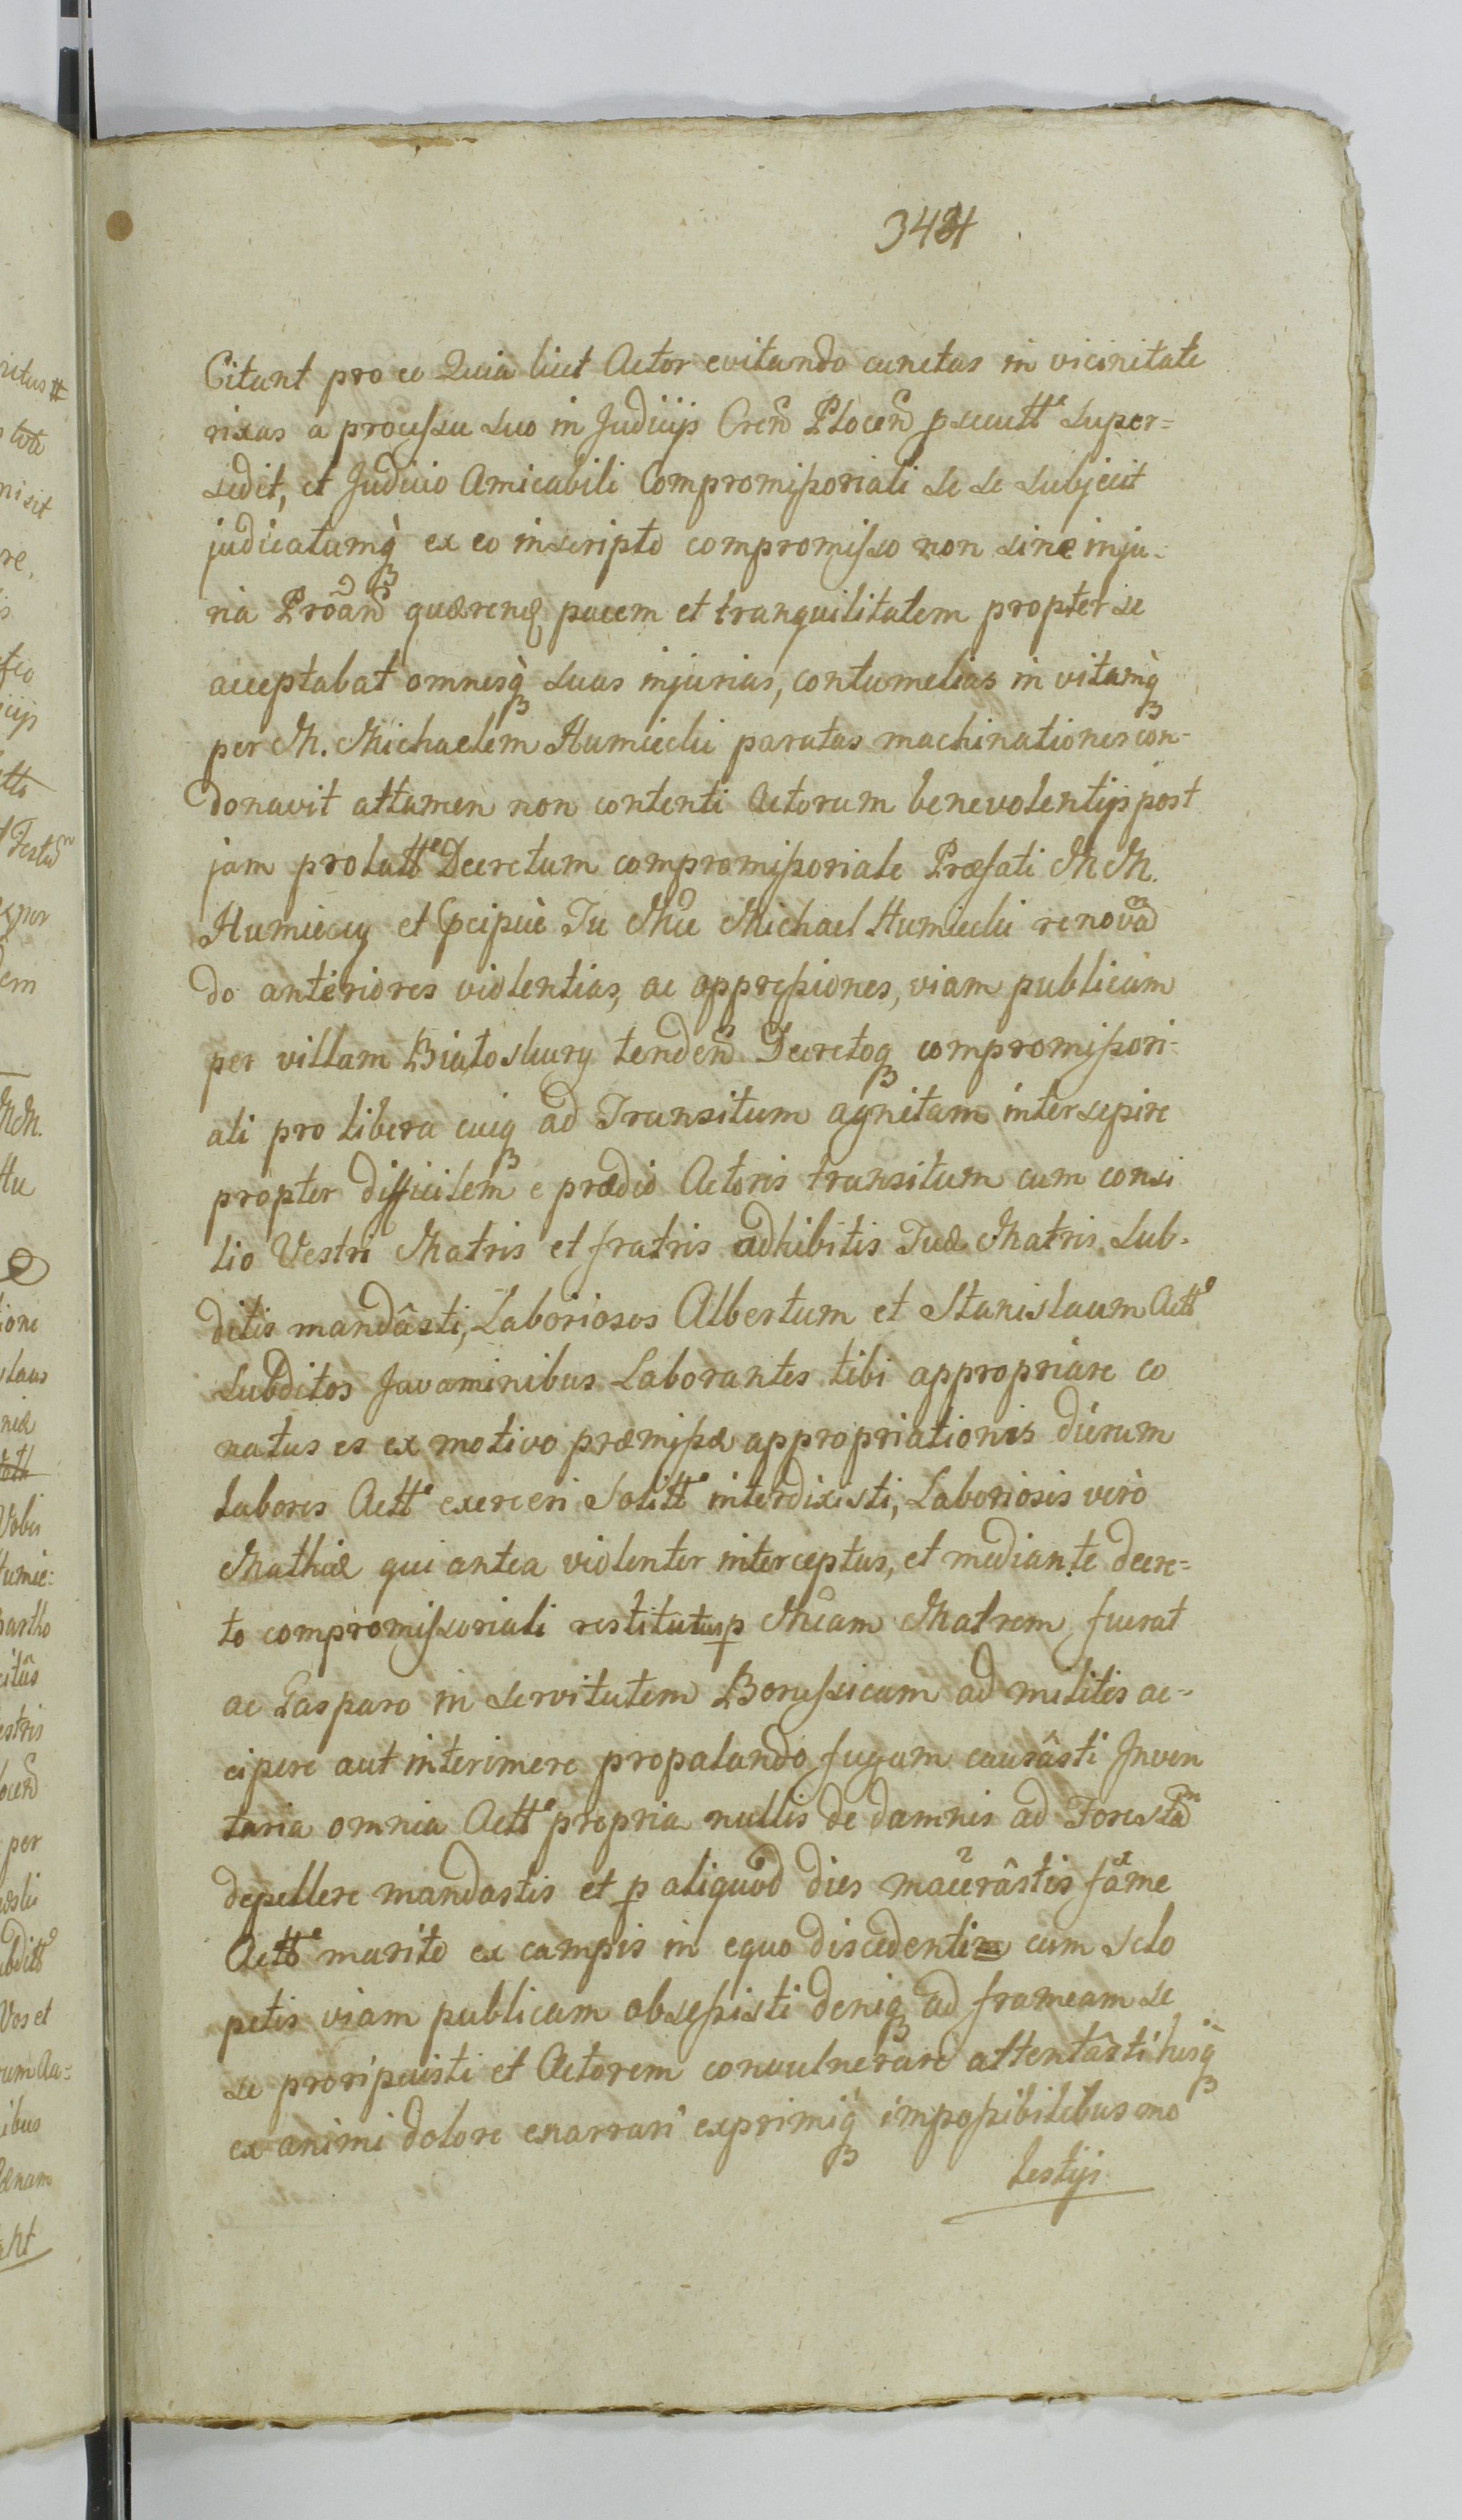 3434
Citant pro eo Quia licet Actor evitando cunctas in vicinitate
rixas a processu suo in Judicijs Cren̄ Plocen̄ p̱secutt͛ super=
sedit, et Judicio Amicabili Compromissoriali se se subjecit
judicatumq̀₃ ex eo inscripto compromisso non sine inju=
ria Proan̄ quærenꝗ pacem et tranquilitatem propter se
acceptabat omnesq̀₃ suas injurias, contumelias in vitamq̀₃
per M. Michaelem Humiecki paratas machinationes con-
donavit attamen non contenti Actorum benevolentijs post
jam prolatt͛ Decretum compromissoriale Præfati M M.
Humieccy et p̱cipuè Tu Mce Michael Humiecki renovan̄
do anteriores violentias, ac oppressiones, viam publicam
per villam Białoskury tenden̄ Decretoq₃ compromissori-
ali pro libera cuiq₃ ad Transitum agnitam intersepire
propter difficilem e prædio Actoris transitum cum consi
lio Vestri Matris et fratris adhibitis Tuæ Matris Sub-
ditis mandâsti, Laboriosos Albertum et Stanislaum Actt͛
Subditos Juvaminibus Laborantes tibi appropriare co
natus es ex motivo præmissæ appropriationis dierum
labores Actt͛ exerceri Solitt͛ interdixisti, Laboriosis vero
Mathiæ qui antea violenter interceptus, et mediante decre=
to compromissoriali restitutus p̱ Mcam Matrem fuerat
ac Casparo in servitutem Borussicam ad milites ac-
cipere aut interimere propalando fugam causâsti Inven
taria omnia Actt͛ propria nullis de damnis ad Forestam
depellere mandastis et p̱ aliquod dies macerâstis fame
Actt͛ marito ex campis in equo discedenti cum sclo
petis viam publicam obsepisti deniq₃ ad frameam se
se proripuisti et Actorem convulnerare attentâsti hisq̀₃
ex animi dolore enarrari exprimiq̀₃ impossibilibus mo
lestijs